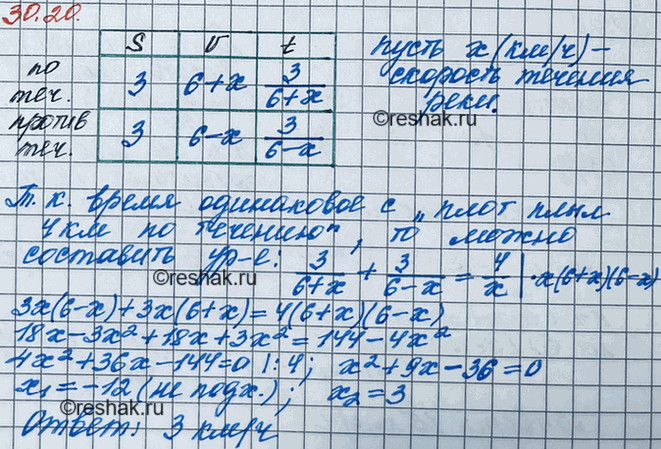 30.20.
S v t
по теч. 3 6+x 3/(6+x)
против теч. 3 6-x 3/(6-x)
пусть x (км/ч) –
скорость течения
реки.
©reshak.ru
Т. к. время одинаковое с „плот плыл
4 км по течению", то можно
составить ур-е: 3/(6+x) + 3/(6-x) = 4/x | ·x(6+x)(6-x)
©reshak.ru
3x(6-x)+3x(6+x)=4(6+x)(6-x)
18x-3x²+18x+3x²=144-4x²
4x²+36x-144=0 |:4; x²+9x-36=0
x₁=-12 (не подх.); x₂=3
©reshak.ru
Ответ: 3 км/ч